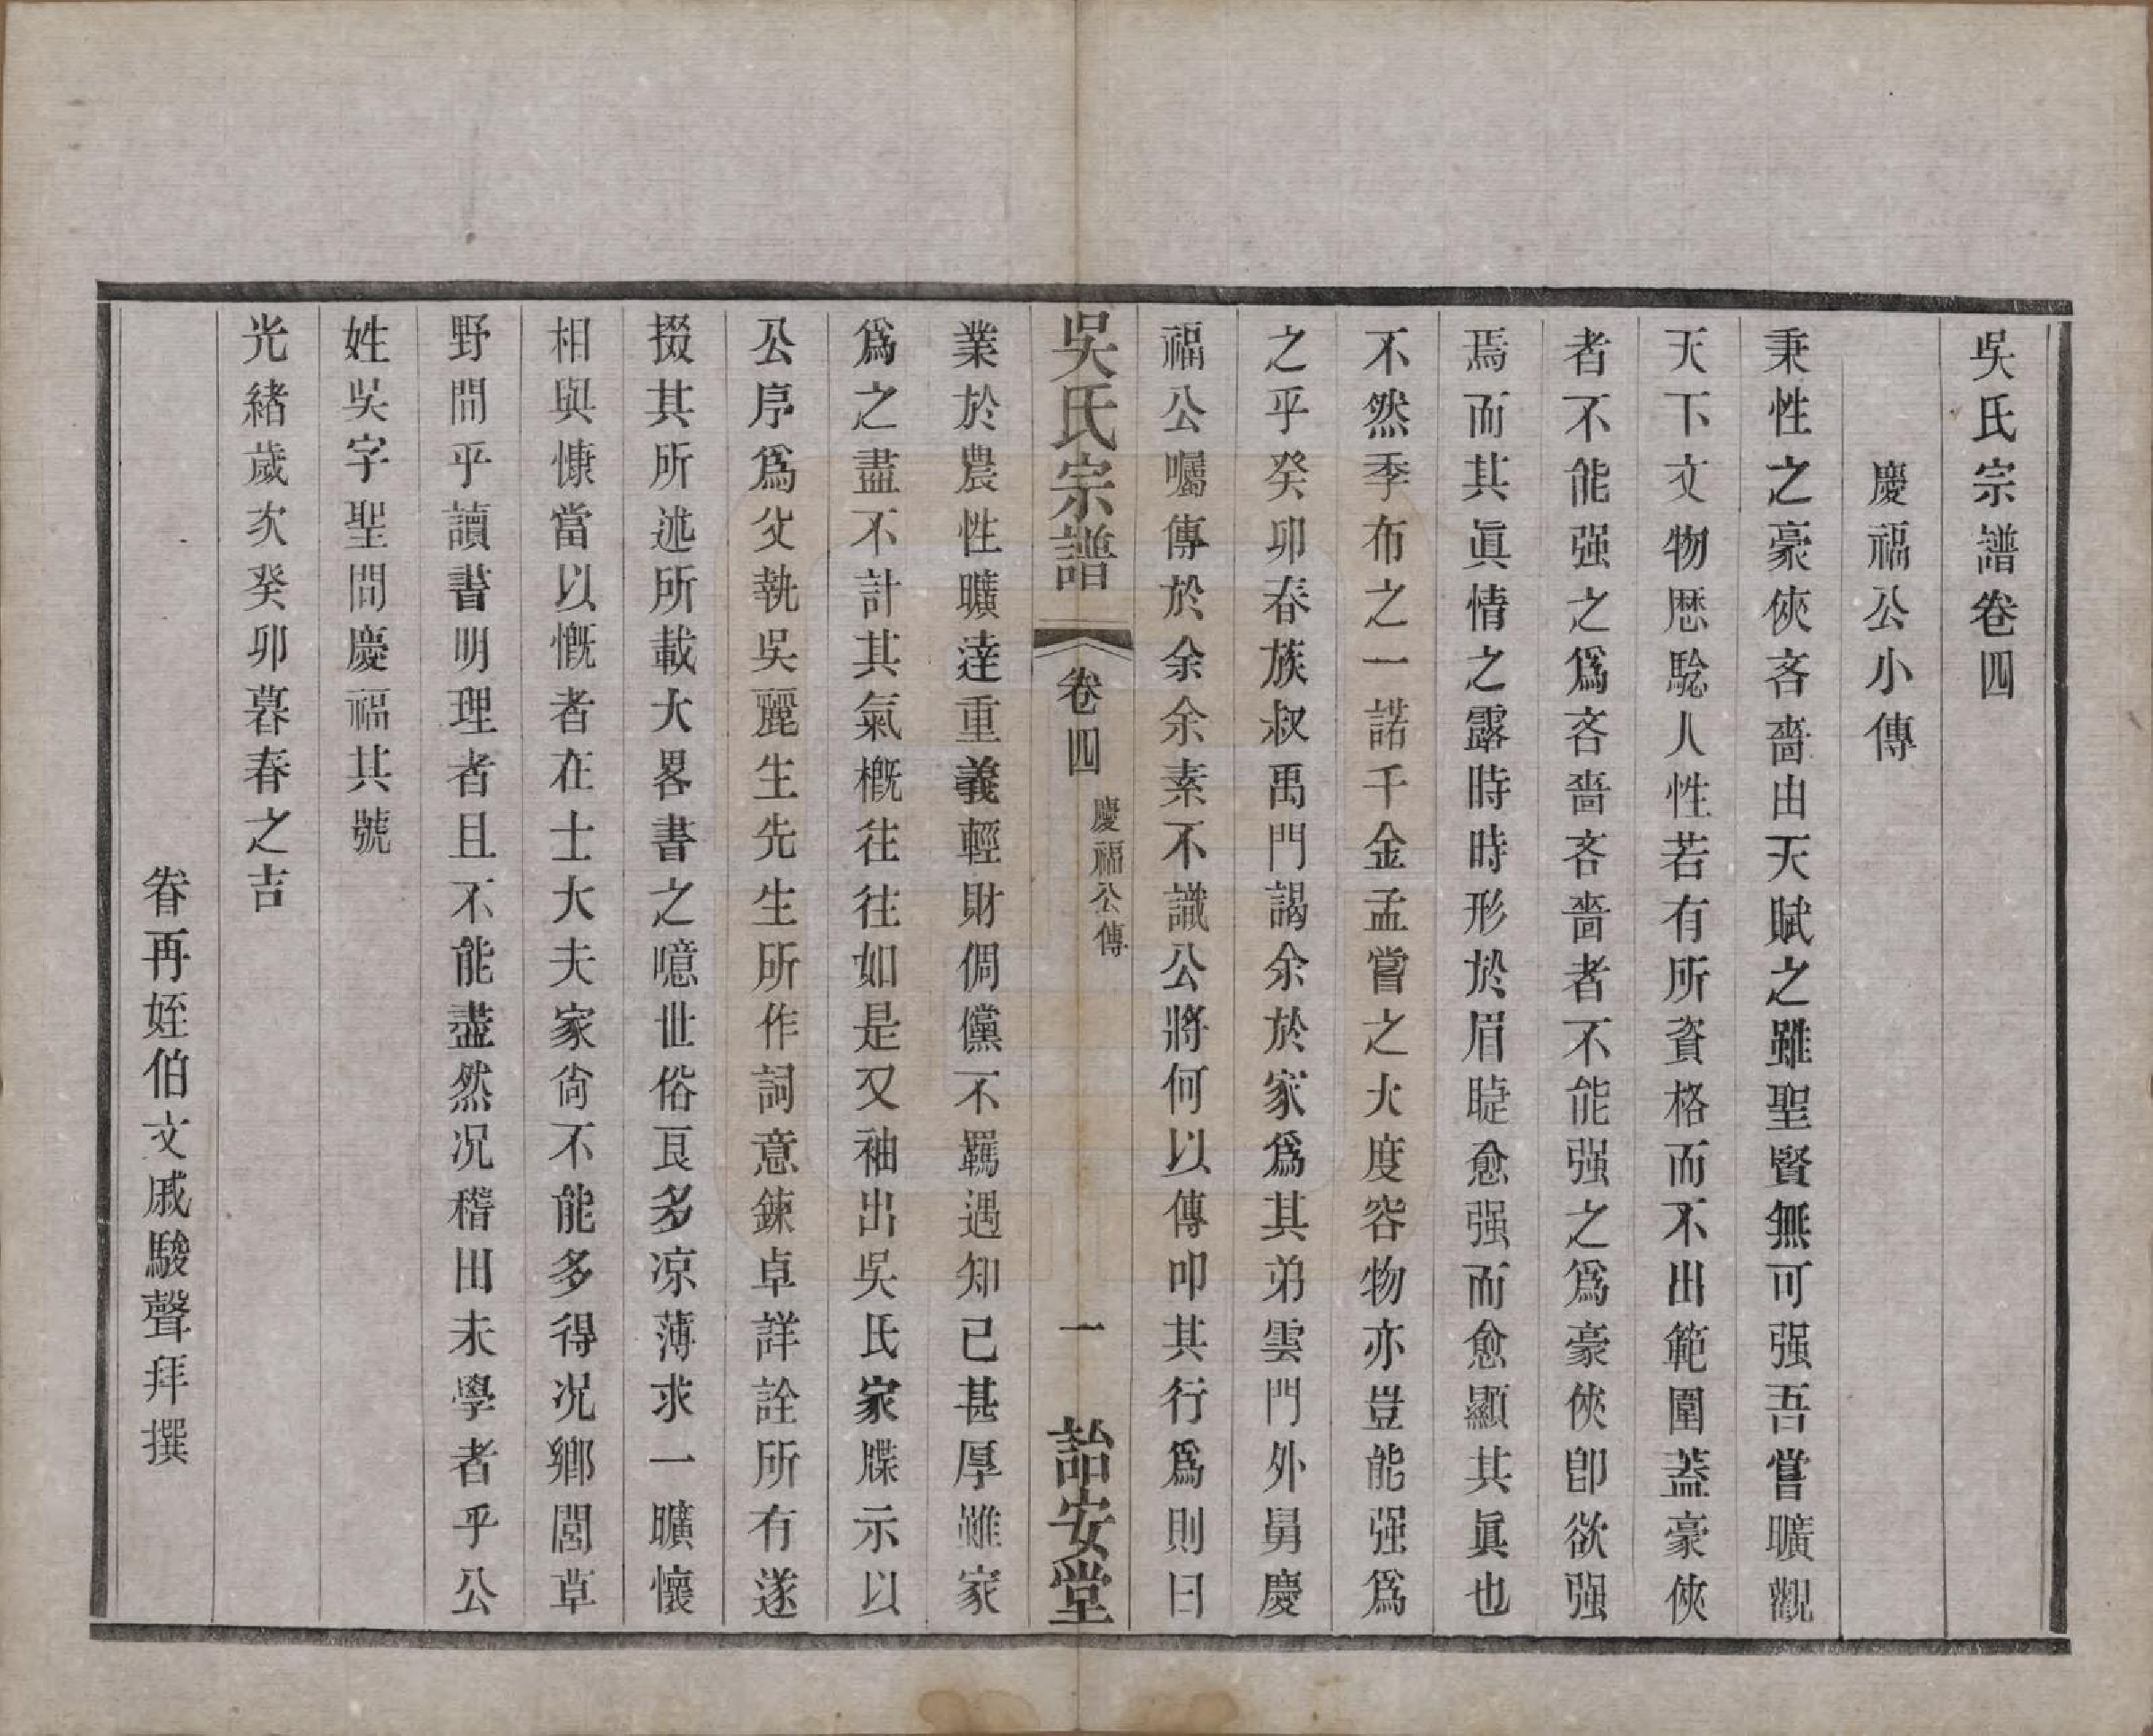 吳氏宗譜卷四
慶福公小傳
秉性之豪俠吝嗇由天賦之雖聖賢無可强吾嘗曠觀
天下文物歴騐人性若有所資格而不出範圍葢豪俠
者不能强之爲吝嗇吝嗇者不能强之爲豪俠卽欲强
焉而其眞情之露時時形於眉睫愈强而愈顯其眞也
不然季布之一諾千金孟嘗之大度容物亦豈能强爲
之乎癸卯春族叔禹門謁余於家爲其弟雲門外舅慶
福公囑傳於余余素不識公將何以傳叩其行爲則曰
吳氏宗譜
卷四
慶福公傳
一
詒安堂
業於農性曠達重義輕財倜儻不羈遇知己甚厚雖家
爲之盡不計其氣概徃徃如是又袖出吳氏家牒示以
公序爲父執吳麗生先生所作詞意鍊卓詳詮所有遂
掇其所述所載大畧書之噫世俗艮多凉薄求一曠懷
相與慷當以慨者在士大夫家尙不能多得况鄉閭草
野間乎讀書明理者且不能盡然况稽田未學者乎公
姓吳字聖問慶福其號
光緒歲次癸卯暮春之吉
眷再姪伯文戚駿聲拜撰